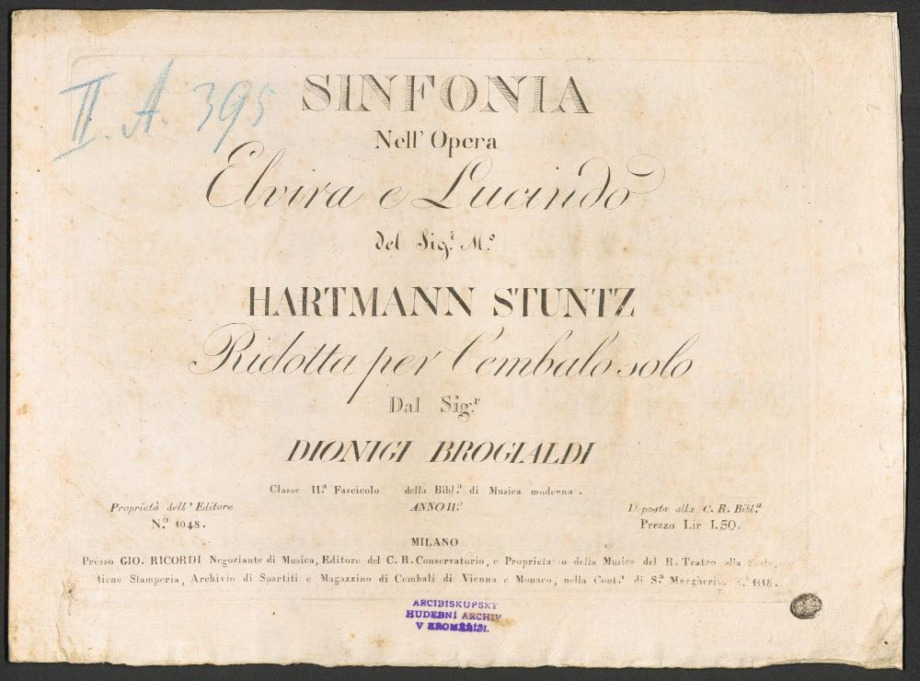 II. A. 395
SINFONIA
Nell' Opera
Elvira e Lucindo
del Sig.r M.o
HARTMANN STUNTZ
Ridotta per Cembalo solo
Dal Sig.r
DIONIGI BROGIALDI
Classe II.a Fascicolo della Bibl.a di Musica moderna.
Proprietà dell' Editore ANNO II.o Deposta alla C. R. Bibl.a
N.o 1048. Prezzo Lir 1.50.
MILANO
Presso GIO. RICORDI Negoziante di Musica, Editore del C. R. Conservatorio, e Proprietario della Musica del R. Teatro alla Scala,
tiene Stamperia, Archivio di Spartiti e Magazzino di Cembali di Vienna e Monaco, nella Cont.a di S.a Margherita 1118.
ARCIBISKUPSKÝ
HUDEBNÍ ARCHIV
V KROMĚŘÍŽI.